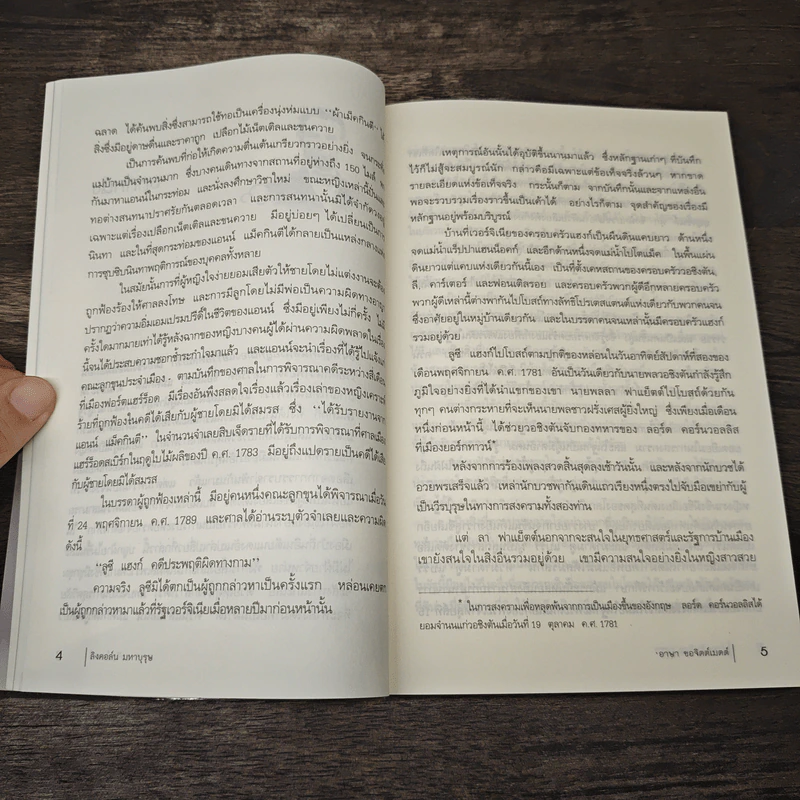 ฉลาด ได้ค้นพบสิ่งซึ่งสามารถใช้ทอเป็นเครื่องนุ่งห่มแบบ "ผ้าเม็คกินตี"
สิ่งซึ่งมีอยู่ดาษดื่นและราคาถูก เปลือกไม้เน็ตเติลและขนควาย
เป็นการค้นพบที่ก่อให้เกิดความตื่นเต้นเกรียวกราวอย่างยิ่ง
แม่บ้านเป็นจำนวนมาก ซึ่งบางคนเดินทางจากสถานที่อยู่ห่างถึง 150 ไมล์
กันมาหาแอนน์ในกระท่อม และนั่งลงศึกษาวิชาใหม่ ขณะหญิงเหล่านี้
ทอต่างสนทนาปราศรัยกันตลอดเวลา และการสนทนานั้นมิได้จำกัด
เฉพาะแต่เรื่องเปลือกเน็ตเติลและขนควาย มีอยู่บ่อยๆ ได้เปลี่ยนเป็น
นินทา และในที่สุดกระท่อมของแอนน์ แม็คกินตีได้กลายเป็นแหล่งกลาง
การซุบซิบนินทาพฤติการณ์ของบุคคลทั้งหลาย
ในสมัยนั้นการที่ผู้หญิงใจง่ายยอมเสียตัวให้ชายโดยไม่แต่งงานจะต้อง
ถูกฟ้องร้องให้ศาลลงโทษ และการมีลูกโดยไม่มีพ่อเป็นความผิดทางอาญา
ปรากฏว่าความอิ่มเอมเปรมปรีดิ์ในชีวิตของแอนน์ ซึ่งมีอยู่เพียงไม่กี่ครั้ง
ครั้งใดมากมายเท่าได้รู้หลังฉากของหญิงบางคนผู้ได้ผ่านความผิดพลาดใน
นี้จนได้ประสบความชอกช้ำระกำใจมาแล้ว และแอนน์จะนำเรื่องที่ได้รู้ไป
คณะลูกขุนประจำเมือง ตามบันทึกของศาลในการพิจารณาคดีระหว่าง
ที่เมืองฟอร์ตแฮร์ร็อด มีเรื่องอันพึงสลดใจเรื่องแล้วเรื่องเล่าของหญิง
ร้ายที่ถูกฟ้องในคดีได้เสียกับผู้ชายโดยมิได้สมรส ซึ่ง "ได้รับรายงานจาก
แอนน์ แม็คกินตี" ในจำนวนจำเลยสิบเจ็ดรายที่ได้รับการพิจารณาที่ศาล
แฮร์ร็อดสเบิร์กในฤดูใบไม้ผลิของปี ค.ศ. 1783 มีอยู่ถึงแปดรายเป็นคดีได้เสีย
กับผู้ชายโดยมิได้สมรส
ในบรรดาผู้ถูกฟ้องเหล่านี้ มีอยู่คนหนึ่งคณะลูกขุนได้พิจารณาเมื่อวัน
ที่ 24 พฤศจิกายน ค.ศ. 1789 และศาลได้อ่านระบุตัวจำเลยและความผิด
ดังนี้
"ลูซี แฮงก์ คดีประพฤติผิดทางกาม"
ความจริง ลูซีมิได้ตกเป็นผู้ถูกกล่าวหาเป็นครั้งแรก หล่อนเคยตก
เป็นผู้ถูกกล่าวหามาแล้วที่รัฐเวอร์จิเนียเมื่อหลายปีมาก่อนหน้านั้น
4 ลิงคอล์น มหาบุรุษ
เหตุการณ์อันนั้นได้อุบัติขึ้นนานมาแล้ว ซึ่งหลักฐานเก่าๆ ที่บันทึก
ไว้ก็ไม่สู้จะสมบูรณ์นัก กล่าวคือมีเฉพาะแต่ข้อเท็จจริงล้วนๆ หากขาด
รายละเอียดแห่งข้อเท็จจริง กระนั้นก็ตาม จากบันทึกนั้นและจากแหล่งอื่น
พอจะรวบรวมเรื่องราวขึ้นเป็นเค้าได้ อย่างไรก็ตาม จุดสำคัญของเรื่องมี
หลักฐานอยู่พร้อมบริบูรณ์
บ้านที่เวอร์จิเนียของครอบครัวแฮงก์เป็นผืนดินแคบยาว ด้านหนึ่ง
จดแม่น้ำแร็ปปาแฮนน็อคก์ และอีกด้านหนึ่งจดแม่น้ำโปโตแม็ค ในพื้นแผ่น
ดินยาวแต่แคบแห่งเดียวกันนี้เอง เป็นที่ตั้งเคหสถานของครอบครัววอชิงตัน,
ลี, คาร์เตอร์ และฟอนเติลรอย และครอบครัวพวกผู้ดีอีกหลายครอบครัว
พวกผู้ดีเหล่านี้ต่างพากันไปโบสถ์ทางลัทธิโปรเตสแตนต์แห่งเดียวกับพวกคนจน
ซึ่งอาศัยอยู่ในหมู่บ้านเดียวกัน และในบรรดาคนจนเหล่านั้นมีครอบครัวแฮงก์
รวมอยู่ด้วย
ลูซี แฮงก์ไปโบสถ์ตามปกติของหล่อนในวันอาทิตย์สัปดาห์ที่สองของ
เดือนพฤศจิกายน ค.ศ. 1781 อันเป็นวันเดียวกับนายพลวอชิงตันกำลังรู้สึก
ภูมิใจอย่างยิ่งที่ได้นำแขกของเขา นายพลลา ฟาแย็ตต์ไปโบสถ์ด้วยกัน
ทุกๆ คนต่างกระหายที่จะเห็นนายพลชาวฝรั่งเศสผู้ยิ่งใหญ่ ซึ่งเพียงเมื่อเดือน
หนึ่งก่อนหน้านี้ ได้ช่วยวอชิงตันจับกองทหารของ ลอร์ด คอร์นวอลลิส
ที่เมืองยอร์กทาวน์*
หลังจากการร้องเพลงสวดสิ้นสุดลงเช้าวันนั้น และหลังจากนักบวชได้
อวยพรเสร็จแล้ว เหล่านักบวชพากันเดินแถวเรียงหนึ่งตรงไปจับมือเขย่ากับผู้
เป็นวีรบุรุษในทางการสงครามทั้งสองท่าน
แต่ ลา ฟาแย็ตต์นอกจากจะสนใจในยุทธศาสตร์และรัฐการบ้านเมือง
เขายังสนใจในสิ่งอื่นรวมอยู่ด้วย เขามีความสนใจอย่างยิ่งในหญิงสาวสวย
* ในการสงครามเพื่อหลุดพ้นจากการเป็นเมืองขึ้นของอังกฤษ ลอร์ด คอร์นวอลลิสได้
ยอมจำนนแก่วอชิงตันเมื่อวันที่ 19 ตุลาคม ค.ศ. 1781
อาษา ขอจิตต์เมตต์ 5